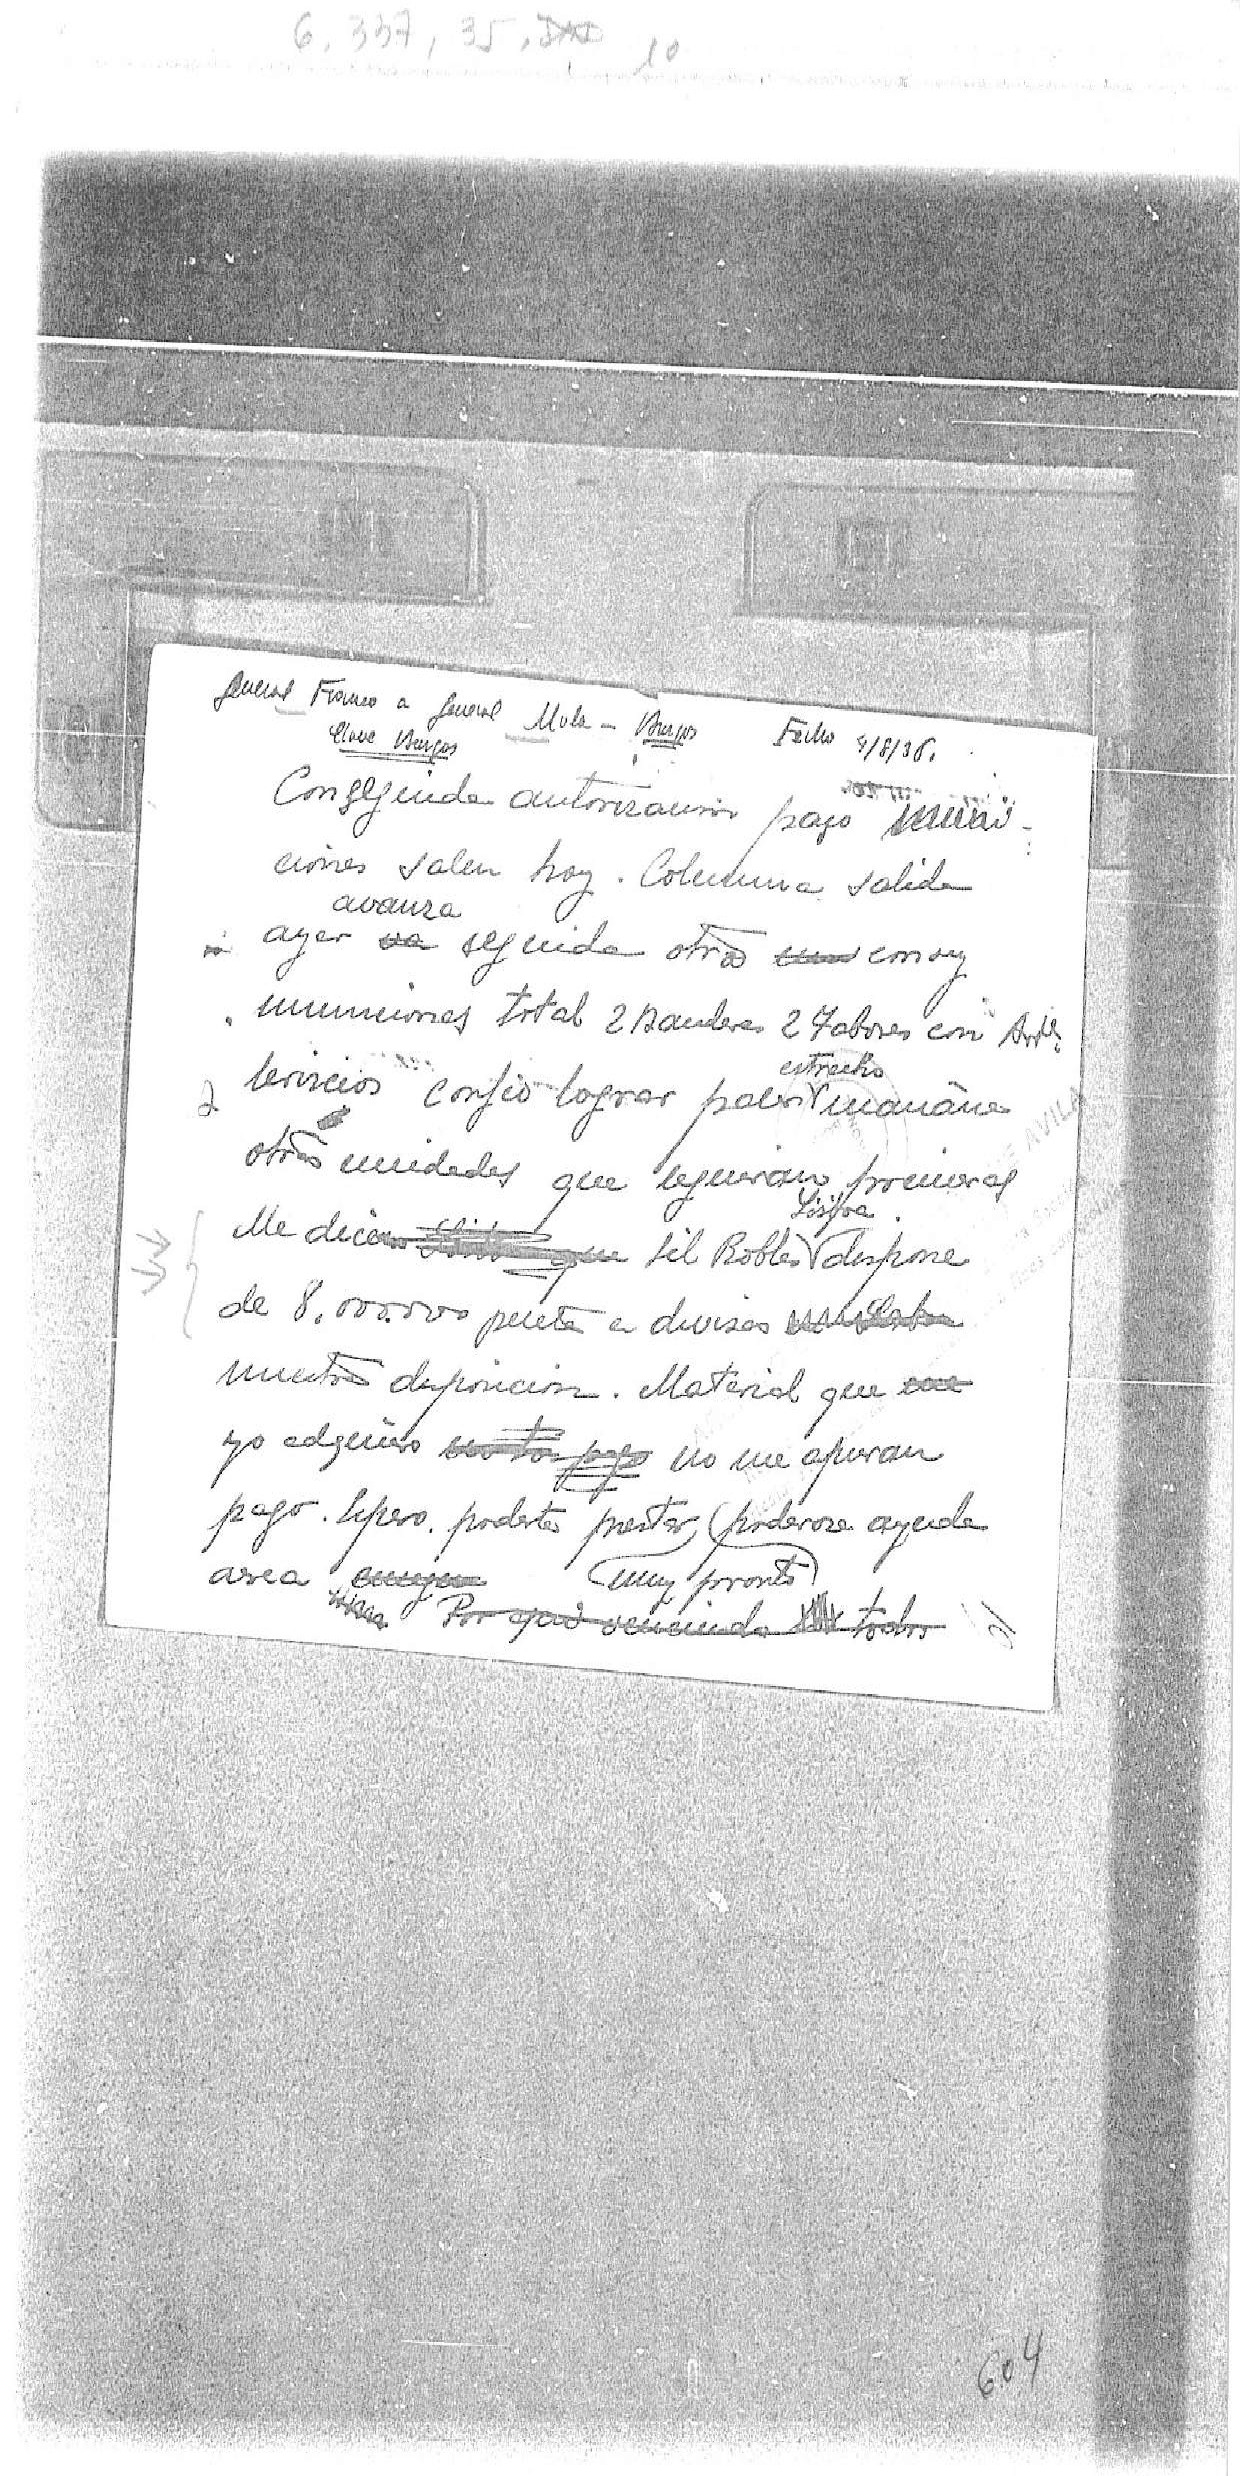 6.337, 35, 10
General Franco a General Mola - Burgos Fecha 4/8/36.
Clave Burgos
Conseguida autorización pago muni-
ciones salen hoy. Columna salida
avanza
ayer va seguida otra con sey
municiones total 2 Banderas 2 Tabores con Arte
servicios confio lograr pasen mañana
estrecho
otras unidades que seguiran primeras
Me dicen que Gil Robles dispone
Lisboa
de 8.000.000 peseta a divisas
nuestra disposicion. Material que me
yo adquiero no me apuran
pago. Espero poderte prestar poderosa ayuda
area muy pronto
Por aqui venciendo todos
AVILA
604